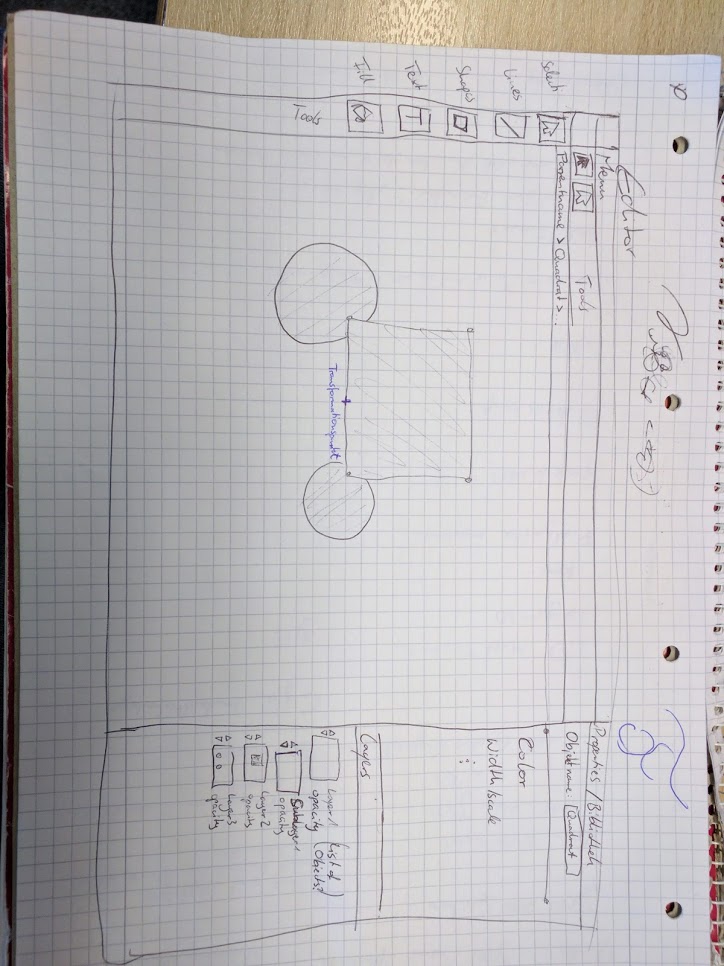 Editor
Menu
Tools
Parentname > Quadrat > .
Select
Lines
Shapes
Text
T
Fill
Tools
Transformationspunkt
Properties / Bibliothek
Objektname: Quadrat
Color
Width/scale
Layers
Layer 1 (List of
opacity Objects?)
Sublayer
opacity
Layer 2
opacity
Layer 3
opacity